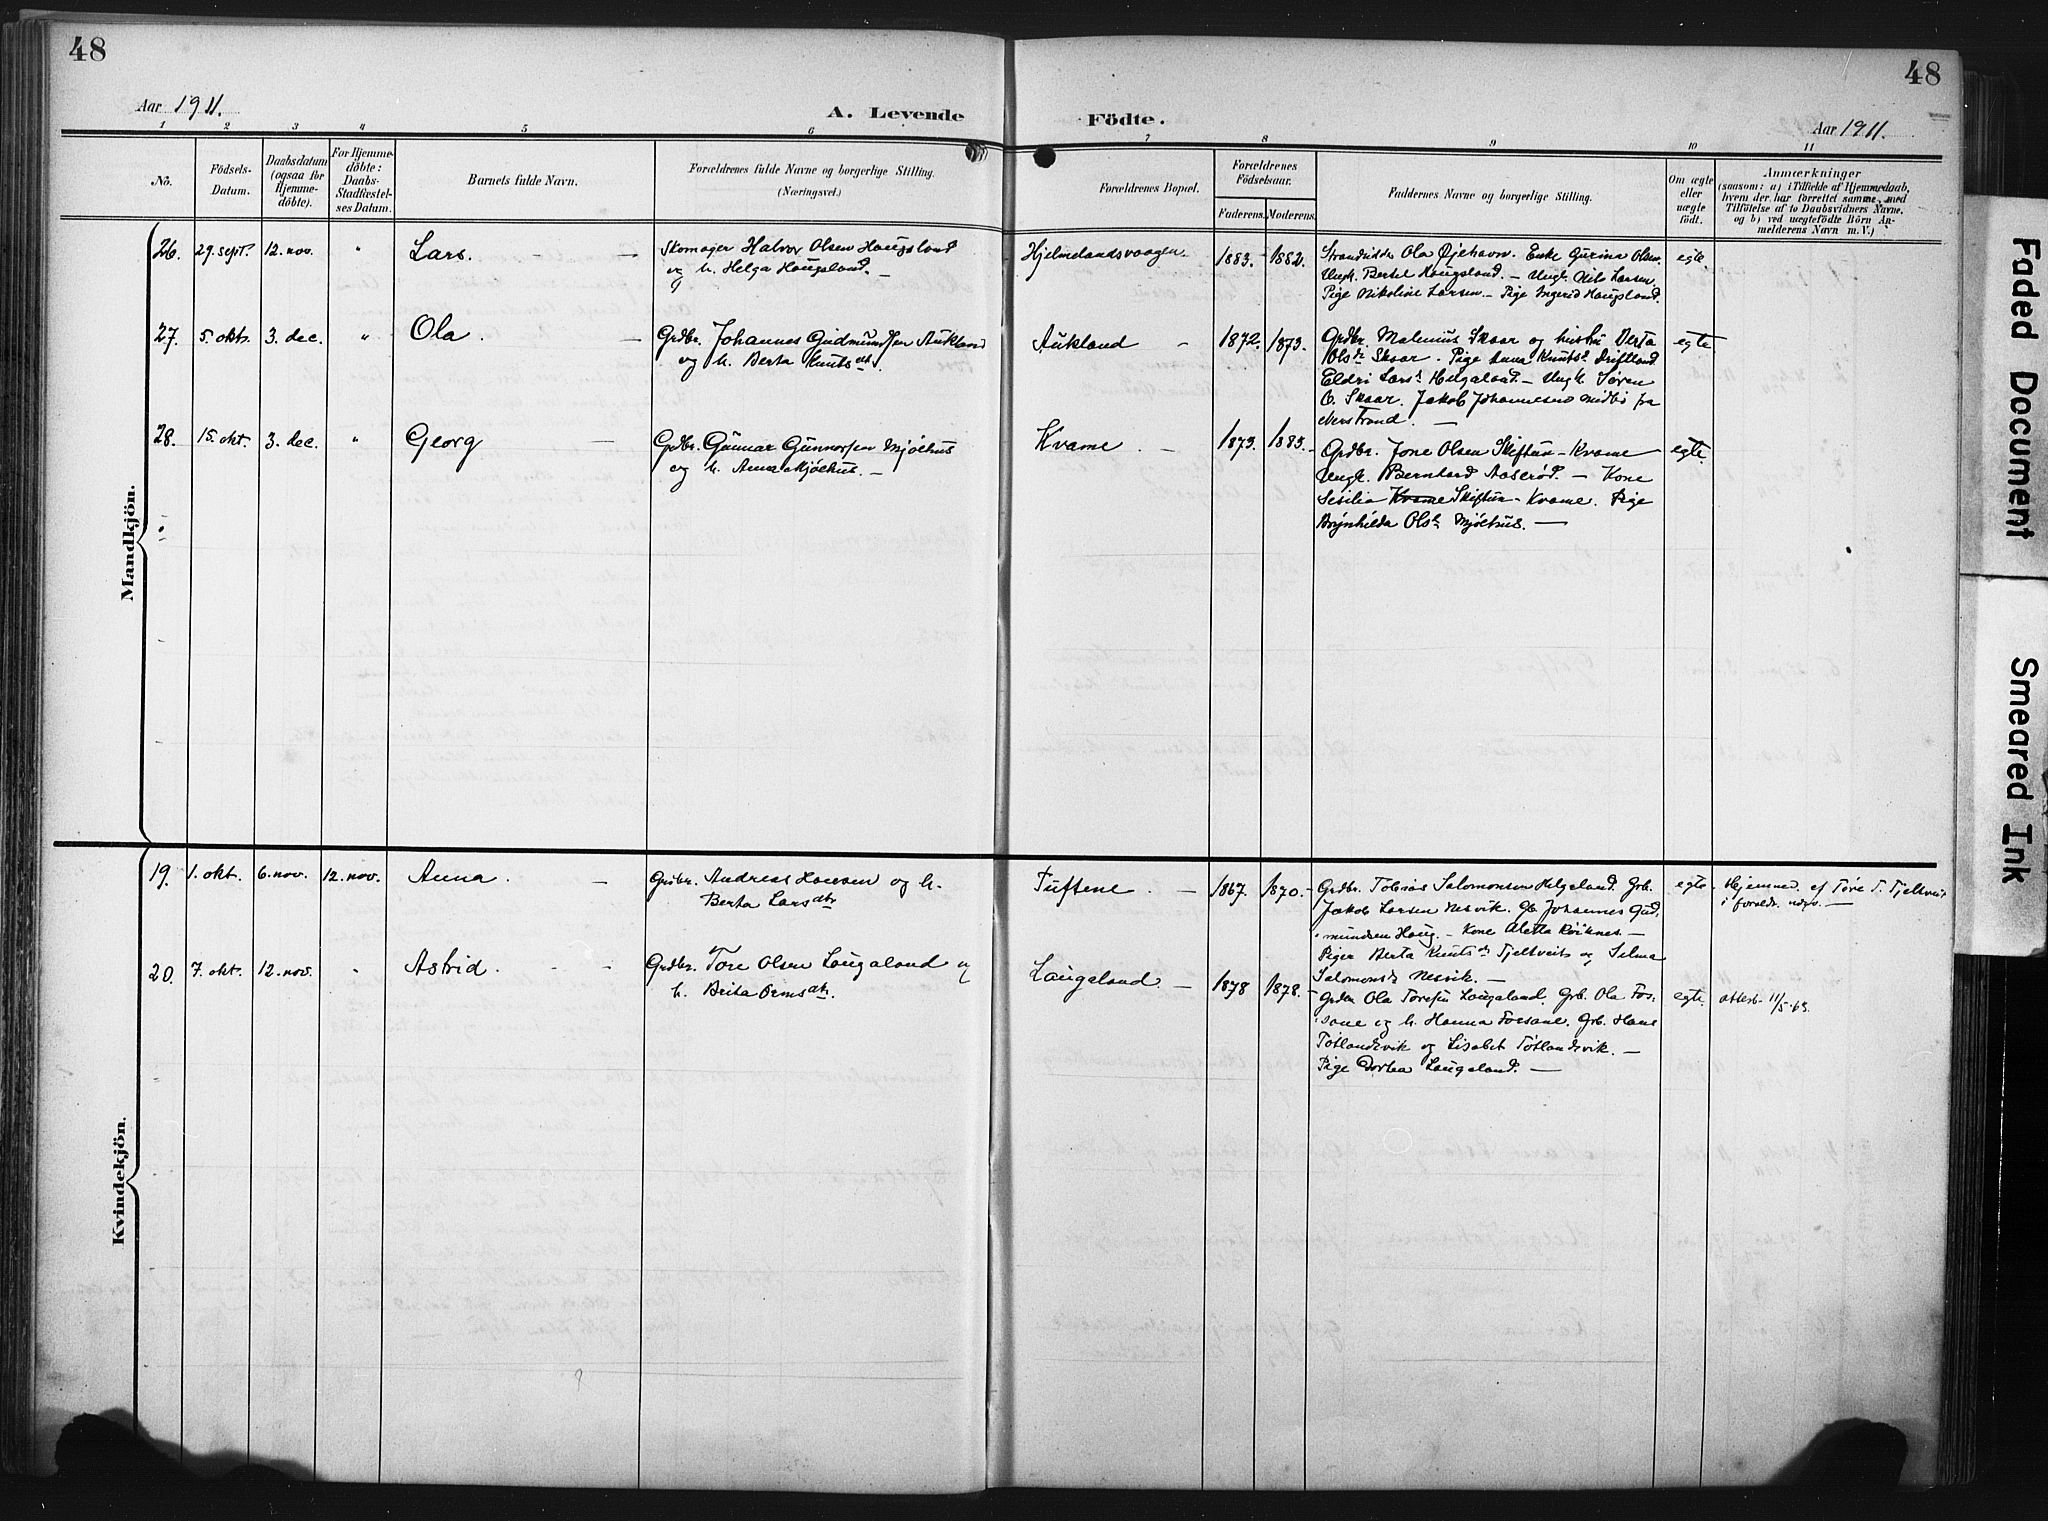 48
48
Aar 1911.
A. Levende
Födte.
Aar 1911.
1 2 3 4 5 6 7 8 9 10 11
No.
Födsels-
Datum.
Daabsdatum
(ogsaa for
Hjemme-
döbte).
For Hjemme-
döbte:
Daabs-
Stadfæstel-
ses Datum.
Barnets fulde Navn.
Forældrenes fulde Navne og borgerlige Stilling.
(Næringsvei.)
Forældrenes Bopæl.
Forældrenes
Födselsaar.
Faderens. Moderens.
Faddernes Navne og borgerlige Stilling.
Om ægte
eller
uægte
födt.
Anmærkninger
(saasom: a) i Tilfælde af Hjemmedaab,
hvem der har forrettet samme, med
Tilföielse af to Daabsvidners Navne,
og b) ved uægtefödte Börn An-
melderens Navn m. V.)
Mandkjön.
26. 29. sept. 12. nov. " Lars.
Skomager Halvor Olsen Haugsland
og h. Helga Haugsland. —
Hjelmelandsvaagen. 1883. 1882.
Strandsidder Ola Øjehavn. Enke Gurina Olsen.
Ungk. Bertel Haugsland. — Ungk. Nils Larsen,
Pige Nikoline Larsen — Pige Ingerid Haugsland.
egte.
27. 5. okt. 3. dec. " Ola
Grdbr. Johannes Gudmundsen Aukland
og h. Berta Knutsdtr.
Aukland 1872. 1873.
Grdbr. Malenius Skaar og hustru Berta
Olsdr Skaar. Pige Anna Knutsd. Driftland
Eldri Larsd. Helgaland. — Ungk. Søren
O. Skaar. Jakob Johannesen Midbö fra
Nerstrand. —
egte.
28. 15. okt. 3. dec. " Georg
Grdbr. Gunnar Gunnarsen Mjølhus
og h. Anna Mjølhus. —
Kvame 1873. 1885.
Grdbr. Jone Olsen Skiftun — Kvame
Ungk. Bernhard Aaserød. — Kone
Sesilia Kvame Skiftun — Kvame. Pige
Brynhilda Olsd. Mjølhus. —
egte.
Kvindekjön.
19. 1. okt. 6. nov. 12. nov. Anna.
Grdbr. Andreas Hansen og h.
Berta Larsdtr
Tuftene. 1867. 1870.
Grdbr. Tobias Salomonsen Helgeland. Grb.
Jakob Larsen Nesvik. Gb. Johannes Gud-
mundsen Haug. — Kone Aletta Røiknes. —
Piger Berta Knutsd. Tjeltveit og Selma
Salomonsd. Nesvik. —
egte. Hjemmed. af Tore T. Tjeltveit
i foreldr. nærv. —
20. 7. okt. 12. nov. " Astrid.
Grdbr. Tore Olsen Laugaland og
h. Brita Ormsdtr.
Laugaland. 1878 1878.
Grdbr Ola Toresen Laugaland. Grb. Ola Fos-
sane og h. Hanna Fossane. Grb. Hans
Tøtlandsvik og Lisabet Tøtlandsvik. —
Pige Dortea Laugaland. —
egte. attest. 11/5-65.
Faded Document
Smeared Ink